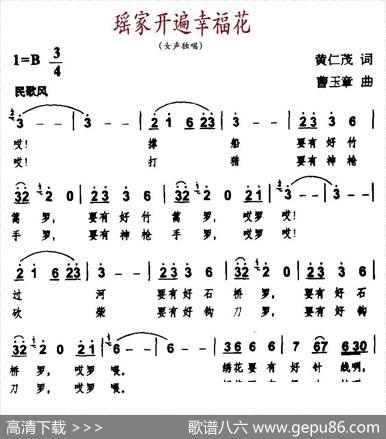 瑶家开遍幸福花
(女声独唱)
1=B 3/4
黄仁茂 词
民歌风
曹玉章 曲
3 - - | 3 - - | 2 1 6 23 | 3 - - | 2·3 3 6
哎! 撑 船 要有好竹
哎! 打 猎 要有神枪
32 2 0 | 2·3 3 6 | 32 2 0 | 2 0 21 | 3 - -
篙 罗, 要有好竹 篙 罗, 哎罗 哎!
手 罗, 要有神枪 手 罗, 哎罗 哎!
2 1 6 23 | 3 - - | 2·3 3 6 | 32 2 0 | 2·3 3 6
过 河 要有好石 桥 罗, 要有好石
砍 柴 要有好钩 刀 罗, 要有好钩
32 2 0 | 2 0 21 | 6 - - | 6 - - | 3666 6 7 | 67 6630
桥 罗, 哎罗 喂。 绣花要有好 针 线咧,
刀 罗, 哎罗 喂。
高清下载 >>>
歌谱八六 www.gepu86.com